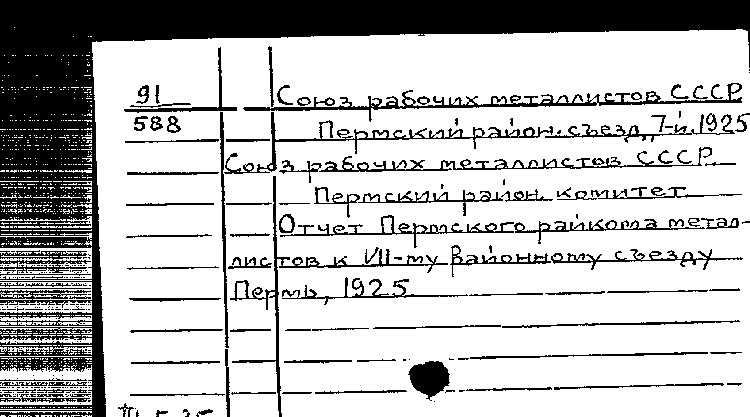 91
588
Союз рабочих металлистов СССР.
Пермский район. съезд, 7-й. 1925
Союз рабочих металлистов СССР.
Пермский район. комитет
Отчет Пермского райкома метал-
листов к VII-му районному съезду
Пермь, 1925